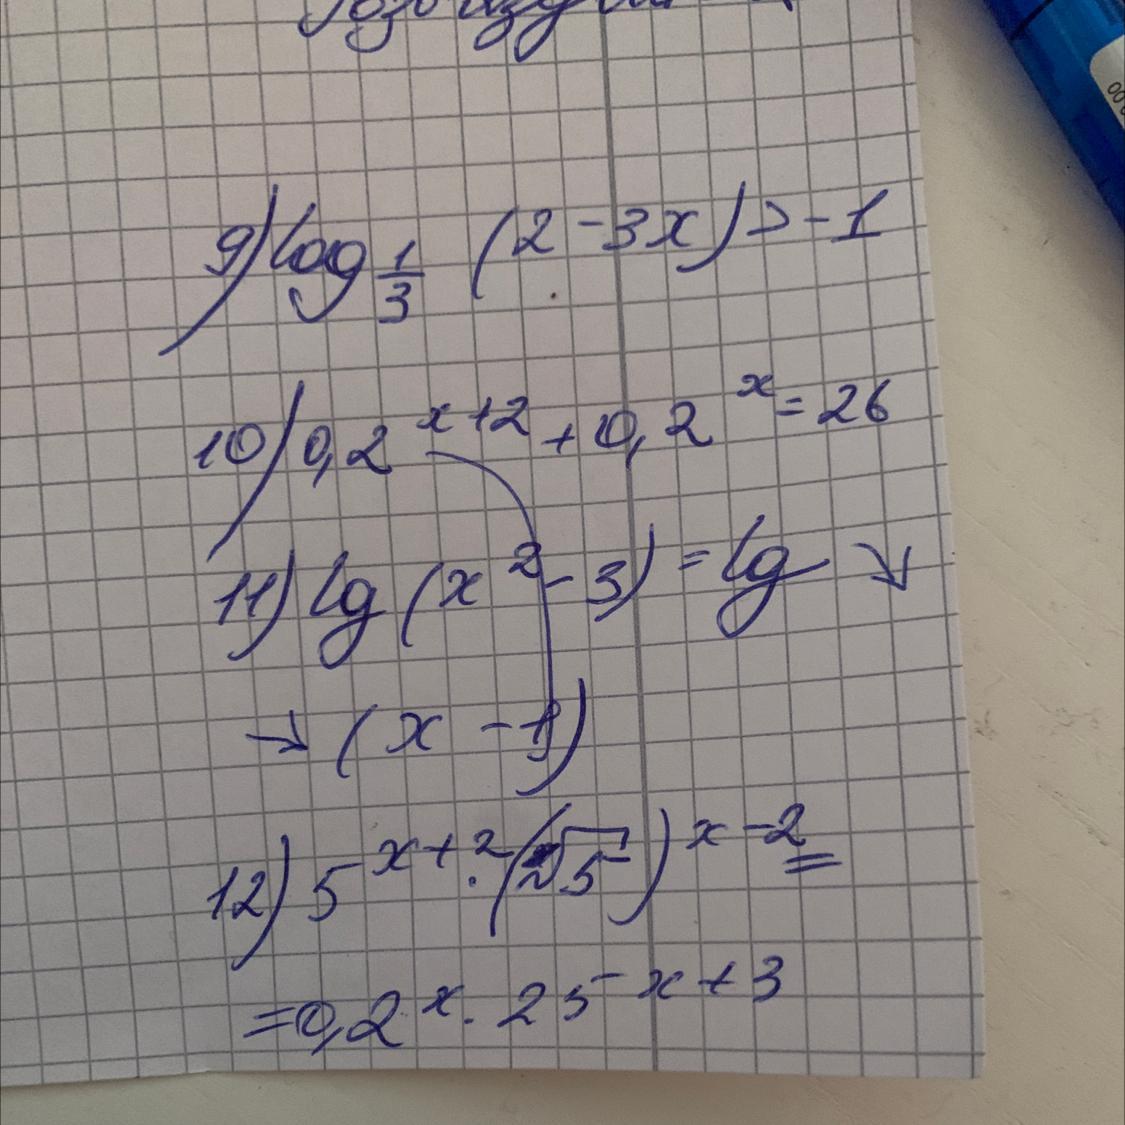 9) log 1/3 (2 - 3x) > -1
10) 0,2^(x+2) + 0,2^x = 26
11) lg (x^2 - 3) = lg ↘
→ (x - 1)
12) 5^(x+2) · (√5)^(x-2) =
= 0,2^x · 25^(-x+3)